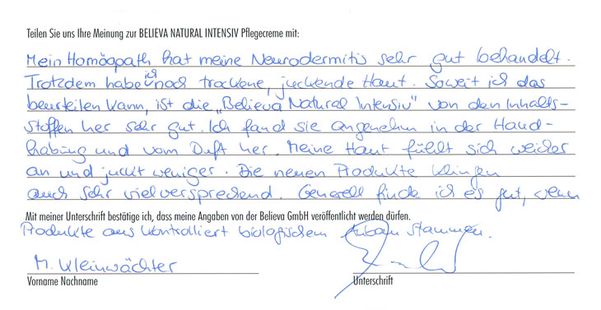 Teilen Sie uns Ihre Meinung zur BELIEVA NATURAL INTENSIV Pflegecreme mit:
Mein Homöopath hat meine Neurodermitis sehr gut behandelt.
Trotzdem habe ich noch trockene, juckende Haut. Soweit ich das
beurteilen kann, ist die „Believa Natural Intensiv" von den Inhalts-
stoffen her sehr gut. Ich fand sie angenehm in der Hand-
habung und vom Duft her. Meine Haut fühlt sich weicher
an und juckt weniger. Die neuen Produkte klingen
auch sehr vielversprechend. Generell finde ich es gut, wenn
Mit meiner Unterschrift bestätige ich, dass meine Angaben von der Believa GmbH veröffentlicht werden dürfen.
Produkte aus kontrolliert biologischem Anbau stammen.
M. Kleinwächter
Vorname Nachname Unterschrift